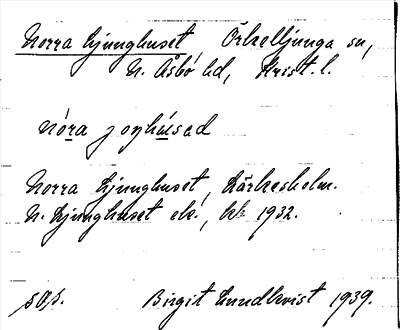 Norra Ljunghuset, Örkelljunga sn,
N. Åsbo hd, Krist. l.
nó̲ra joŋhú̲sad
Norra Ljunghuset, Lärkesholm.
N. Ljunghuset ek., 1932.
sap. Birgit Lundkvist 1939.